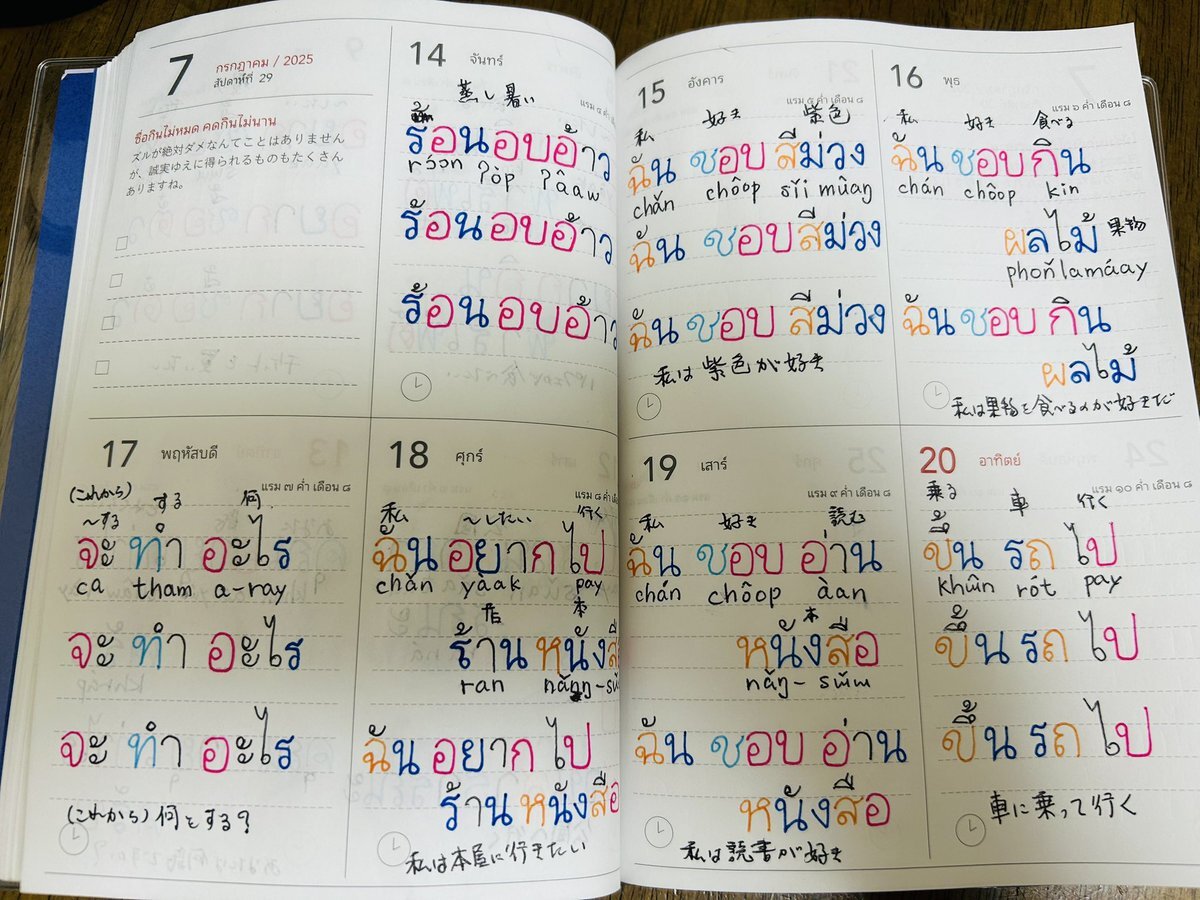 7
กรกฎาคม / 2025
สัปดาห์ที่ 29
ซื่อกินไม่หมด คดกินไม่นาน
ズルが絶対ダメなんてことはありません
が、誠実ゆえに得られるものもたくさん
ありますね。
14 จันทร์
แรม ๔ ค่ำ เดือน ๘
蒸し暑い
ร้อนอบอ้าว
rɔ́ɔn ʔòp ʔâaw
ร้อนอบอ้าว
ร้อนอบอ้าว
15 อังคาร
แรม ๕ ค่ำ เดือน ๘
私 好き 紫色
ฉัน ชอบ สีม่วง
chǎn chôop sǐi mûaŋ
ฉัน ชอบสีม่วง
ฉัน ชอบ สีม่วง
私は紫色が好き
16 พุธ
แรม ๖ ค่ำ เดือน ๘
私 好き 食べる
ฉัน ชอบ กิน
chán chôop kin
ผลไม้ 果物
phoňlamáay
ฉัน ชอบ กิน
ผลไม้
私は果物を食べるのが好きだ
17 พฤหัสบดี
แรม ๗ ค่ำ เดือน ๘
(これから) する 何
~する
จะ ทำ อะไร
ca tham a-ray
จะ ทำ อะไร
จะ ทำ อะไร
(これから)何をする?
18 ศุกร์
แรม ๘ ค่ำ เดือน ๘
私 ~したい 行く
ฉัน อยาก ไป
chǎn yàak pay
店 本
ร้าน หนังสือ
ran nǎŋ-sɯ̌
ฉัน อยาก ไป
ร้าน หนังสือ
私は本屋に行きたい
19 เสาร์
แรม ๙ ค่ำ เดือน ๘
私 好き 読む
ฉัน ชอบ อ่าน
chán chôop àan
本
หนังสือ
nǎŋ-sɯ̌ɯ
ฉัน ชอบ อ่าน
หนังสือ
私は読書が好き
20 อาทิตย์
แรม ๑๐ ค่ำ เดือน ๘
乗る 車 行く
ขึ้น รถ ไป
khɯ̂n rót pay
ขึ้น รถ ไป
ขึ้น รถ ไป
車に乗って行く